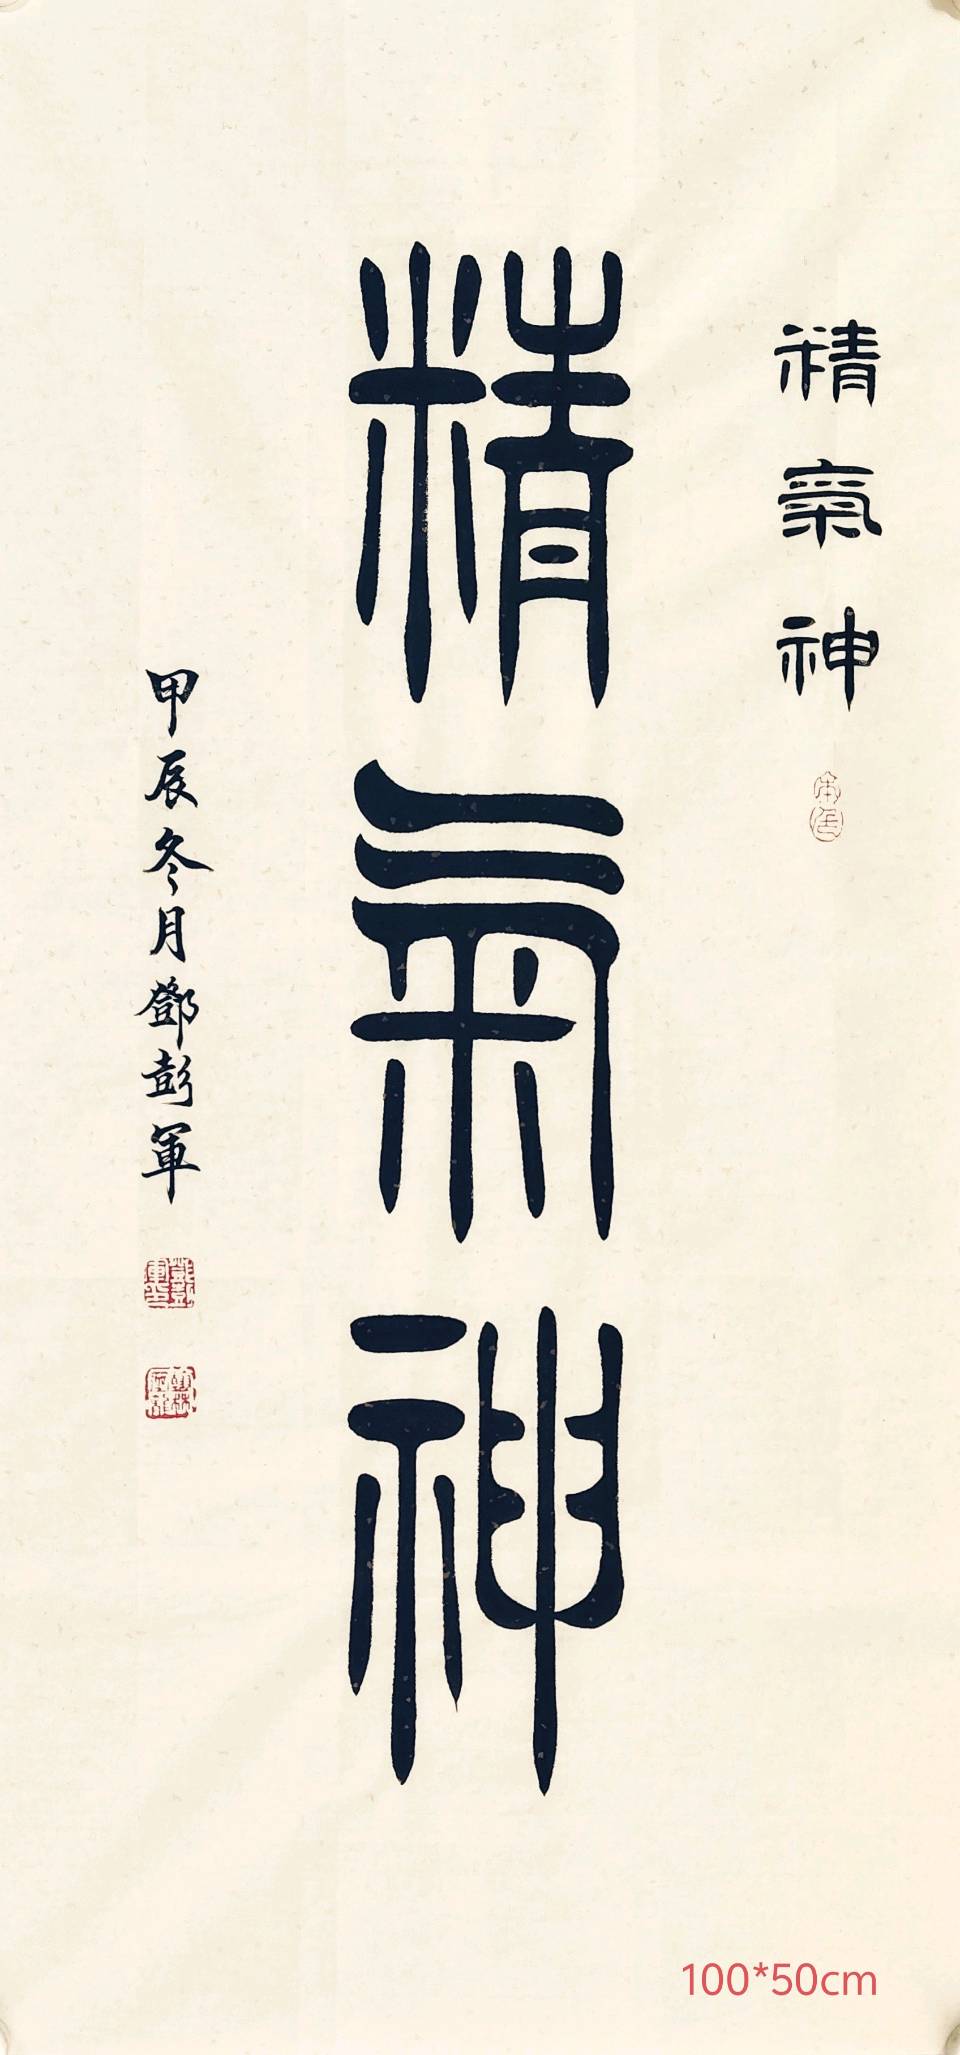 精氣神
精氣神
甲辰冬月鄧彭軍
100*50cm